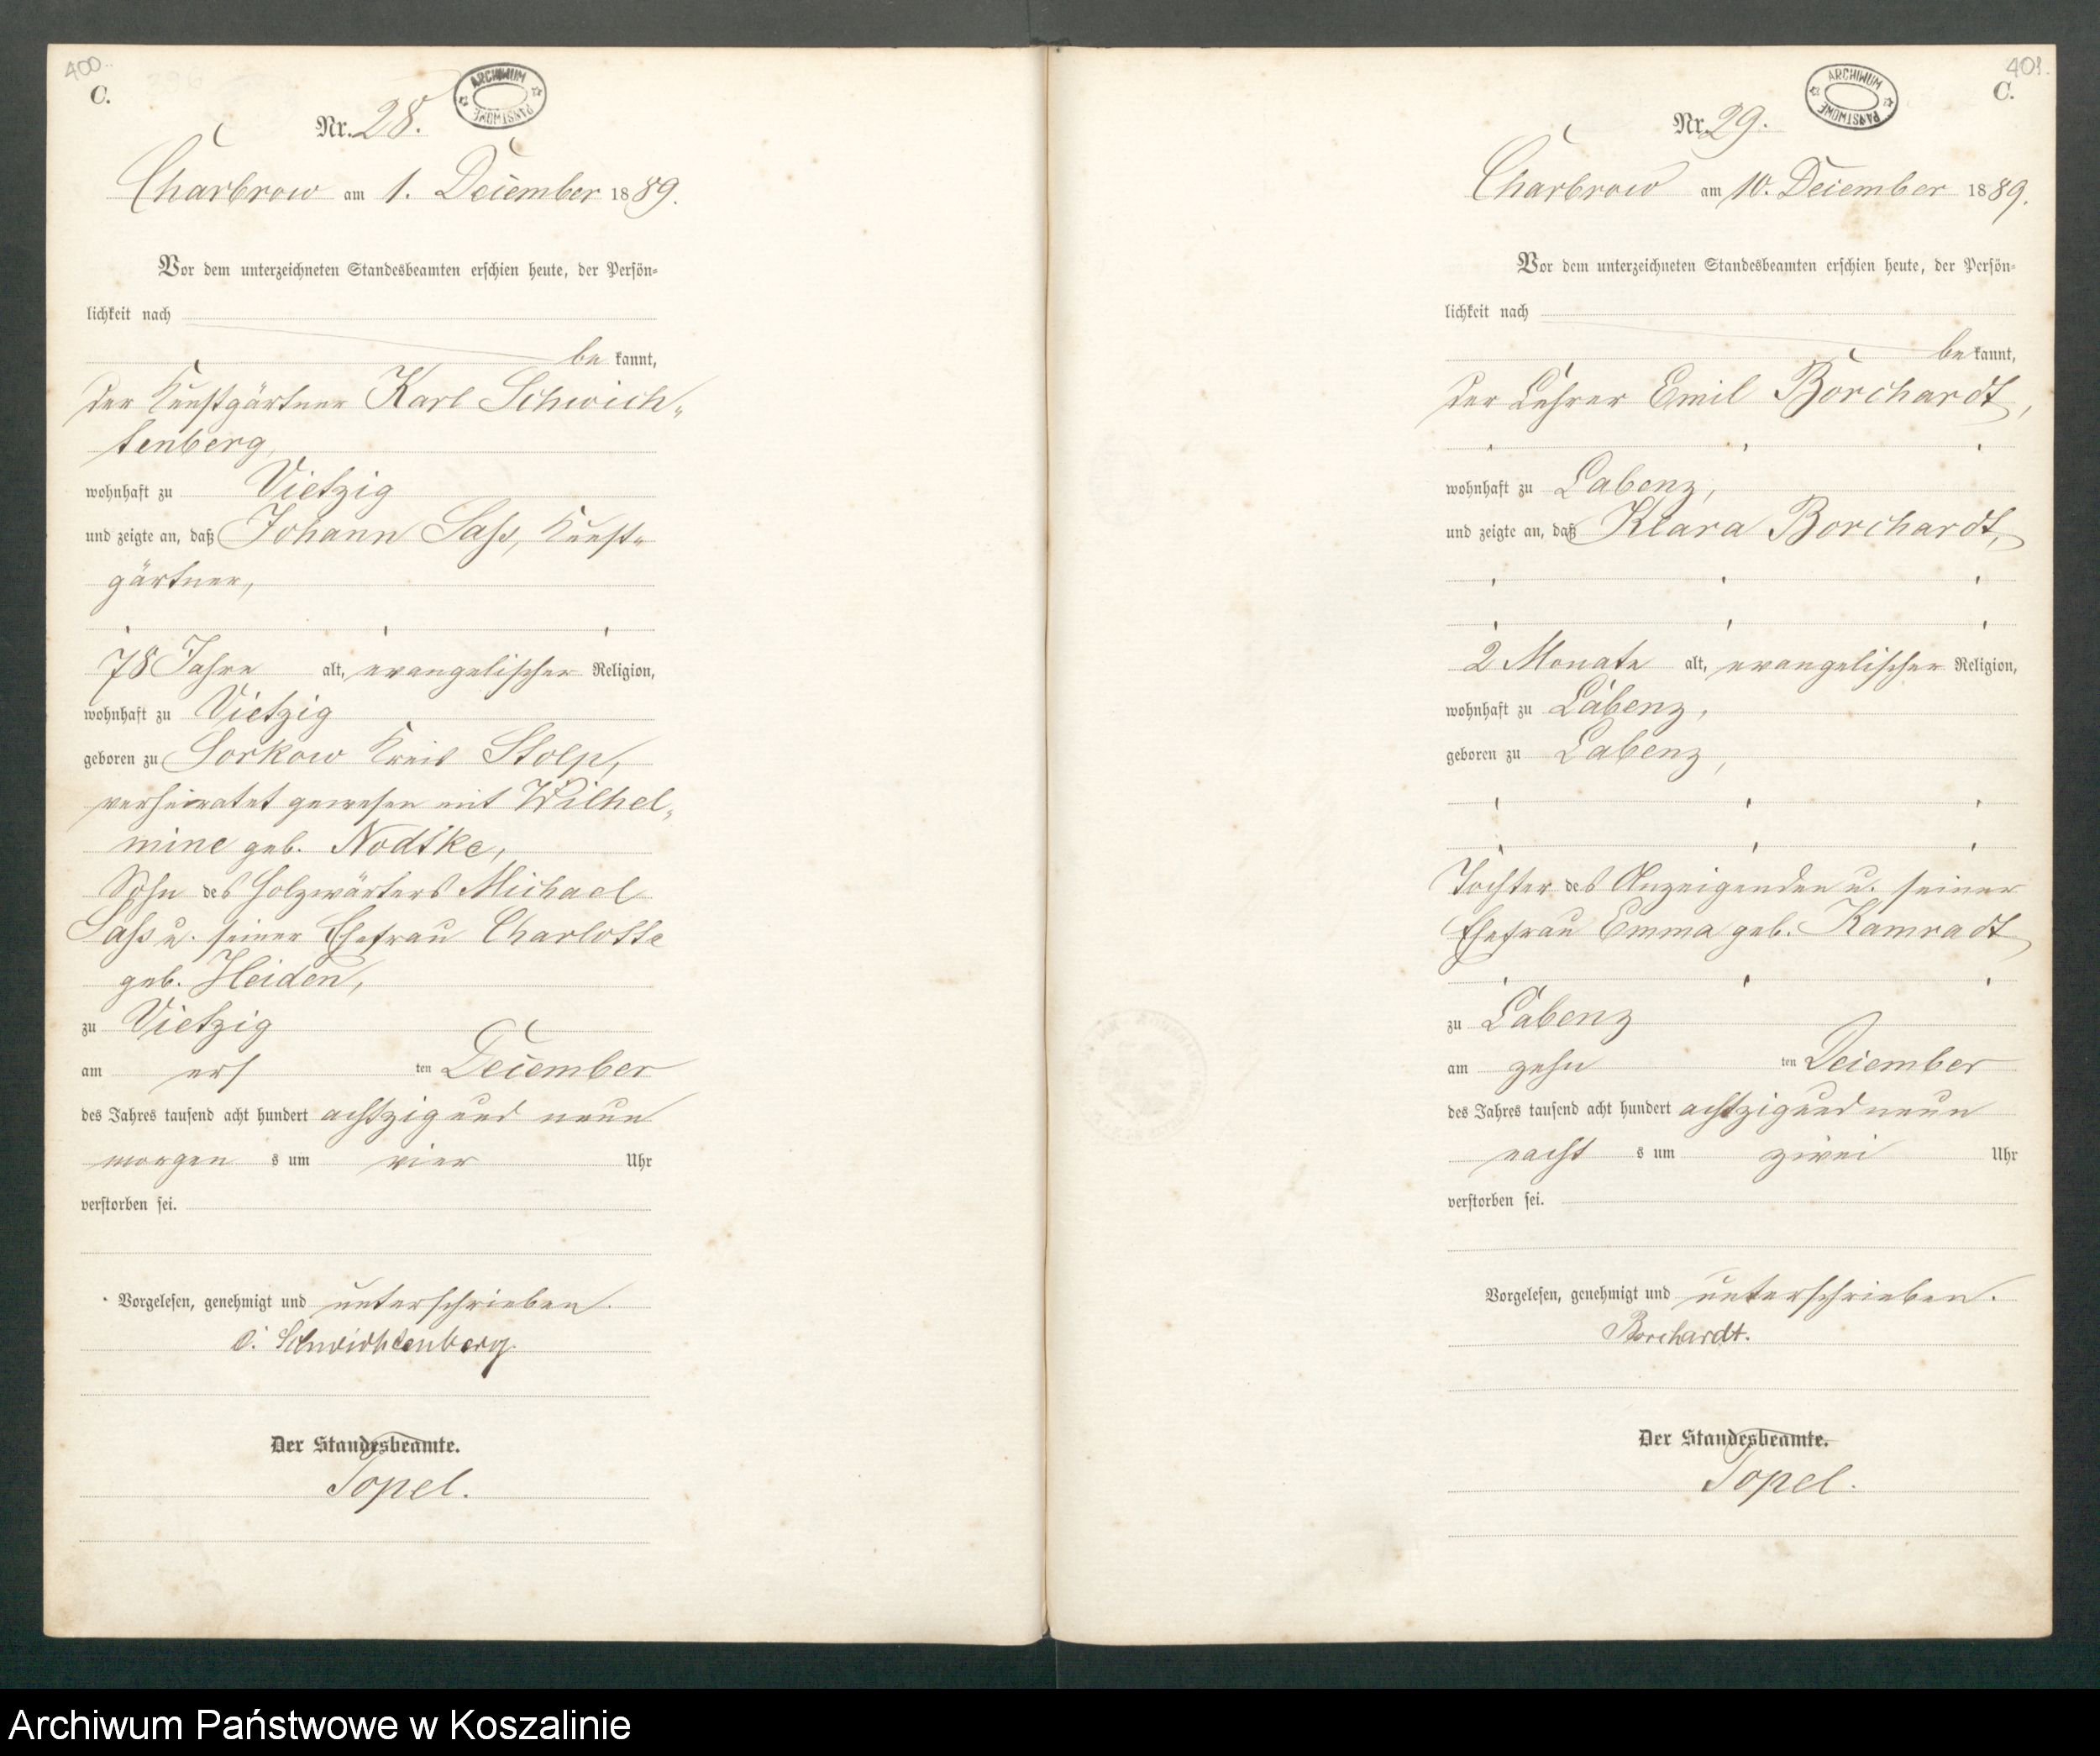 400.
C.
ARCHIWUM PAŃSTWOWE
Nr. 28.
Charbrow am 1. December 1889.
Vor dem unterzeichneten Standesbeamten erschien heute, der Persön-
lichkeit nach
be kannt,
der Kunstgärtner Karl Schwich-
tenberg,
wohnhaft zu Vietzig
und zeigte an, daß Johann Sass, Kunst-
gärtner,
78 Jahre alt, evangelischer Religion,
wohnhaft zu Vietzig
geboren zu Sorkow Kreis Stolp,
verheiratet gewesen mit Wilhel-
mine geb. Nodtke,
Sohn des Holzwärters Michael
Sass u. seiner Ehefrau Charlotte
geb. Heiden,
zu Vietzig
am ers ten December
des Jahres tausend acht hundert achtzig und neun
morgen s um vier Uhr
verstorben sei.
Vorgelesen, genehmigt und unterschrieben.
C. Schwichtenberg.
Der Standesbeamte.
Topel.
401.
C.
ARCHIWUM PAŃSTWOWE
Nr. 29.
Charbrow am 10. December 1889.
Vor dem unterzeichneten Standesbeamten erschien heute, der Persön-
lichkeit nach
be kannt,
der Lehrer Emil Borchardt,
wohnhaft zu Labenz,
und zeigte an, daß Klara Borchardt,
2 Monate alt, evangelischer Religion,
wohnhaft zu Labenz,
geboren zu Labenz,
Tochter des Anzeigenden u. seiner
Ehefrau Emma geb. Kamradt
zu Labenz
am zehn ten December
des Jahres tausend acht hundert achtzig und neun
nacht s um zwei Uhr
verstorben sei.
Vorgelesen, genehmigt und unterschrieben.
Borchardt.
Der Standesbeamte.
Topel.
Archiwum Państwowe w Koszalinie